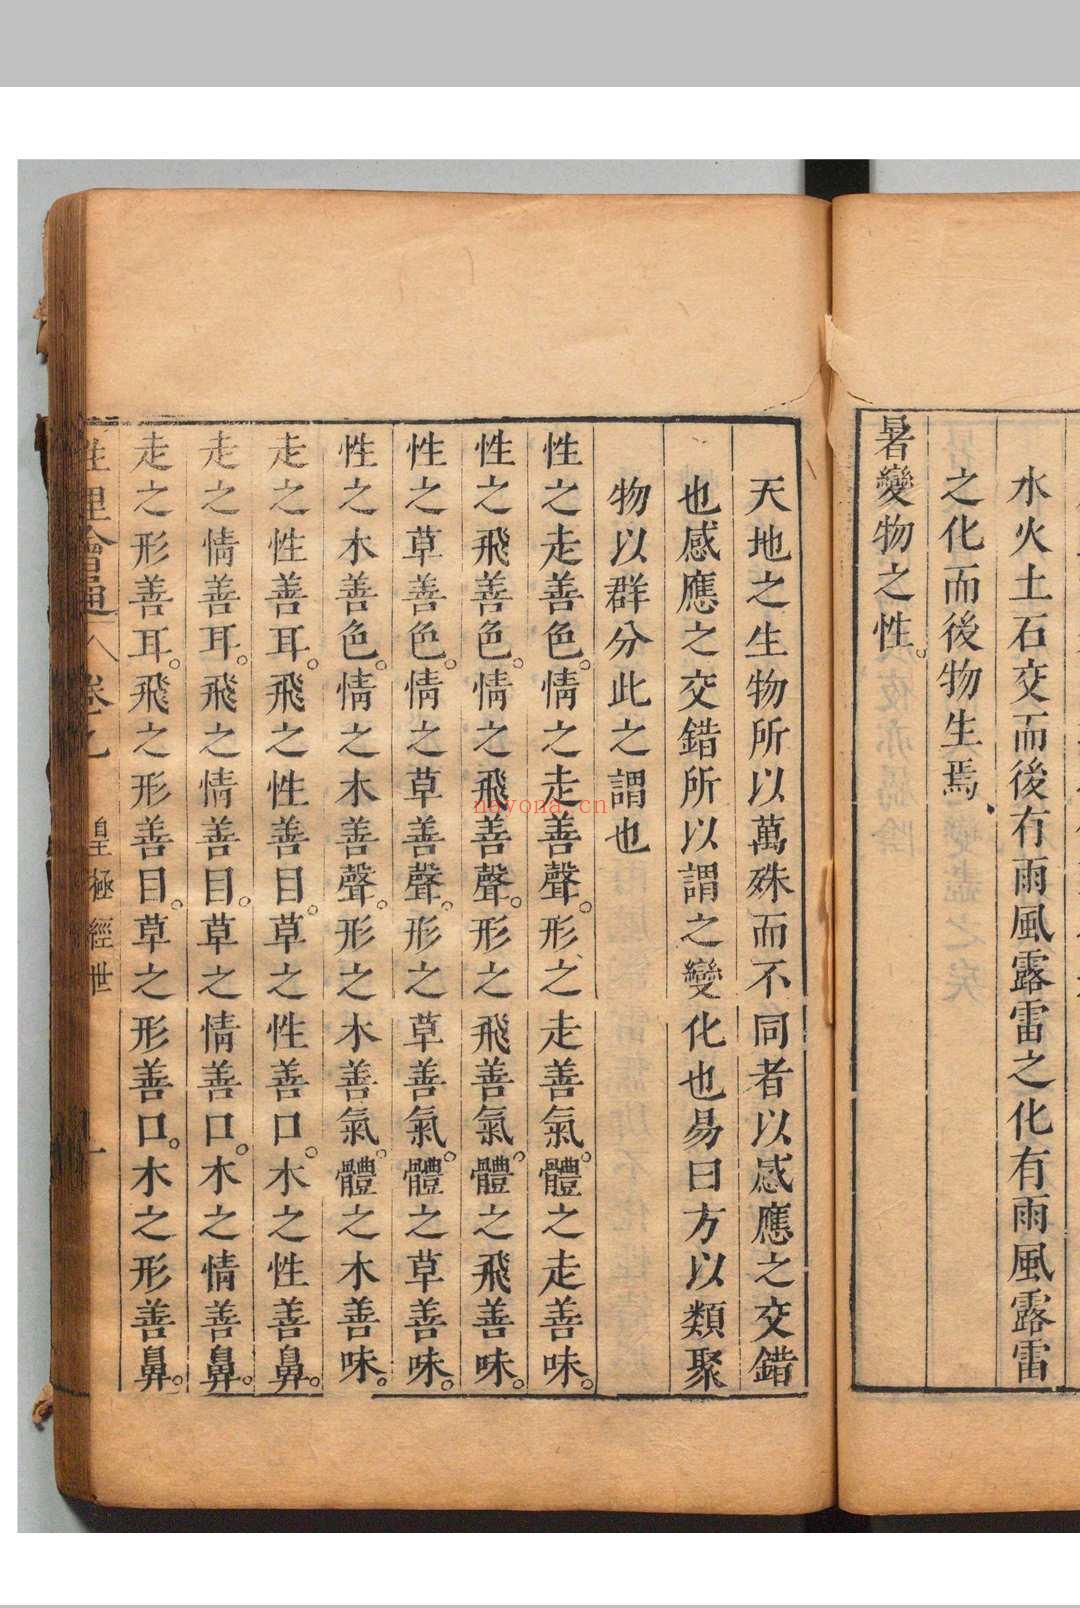 水火土石交而後有雨風露雷之化有雨風露雷
之化而後物生焉
暑變物之性。
天地之生物所以萬殊而不同者以感應之交錯
也感應之交錯所以謂之變化也易曰方以類聚
物以群分此之謂也
性之走善色。情之走善聲。形之走善氣。體之走善味。
性之飛善色。情之飛善聲。形之飛善氣。體之飛善味。
性之草善色。情之草善聲。形之草善氣。體之草善味。
性之木善色。情之木善聲。形之木善氣。體之木善味。
走之性善耳。飛之性善目。草之性善口。木之性善鼻。
走之情善耳。飛之情善目。草之情善口。木之情善鼻。
走之形善耳。飛之形善目。草之形善口。木之形善鼻。
性理會通 卷之 皇極經世
nayona.cn